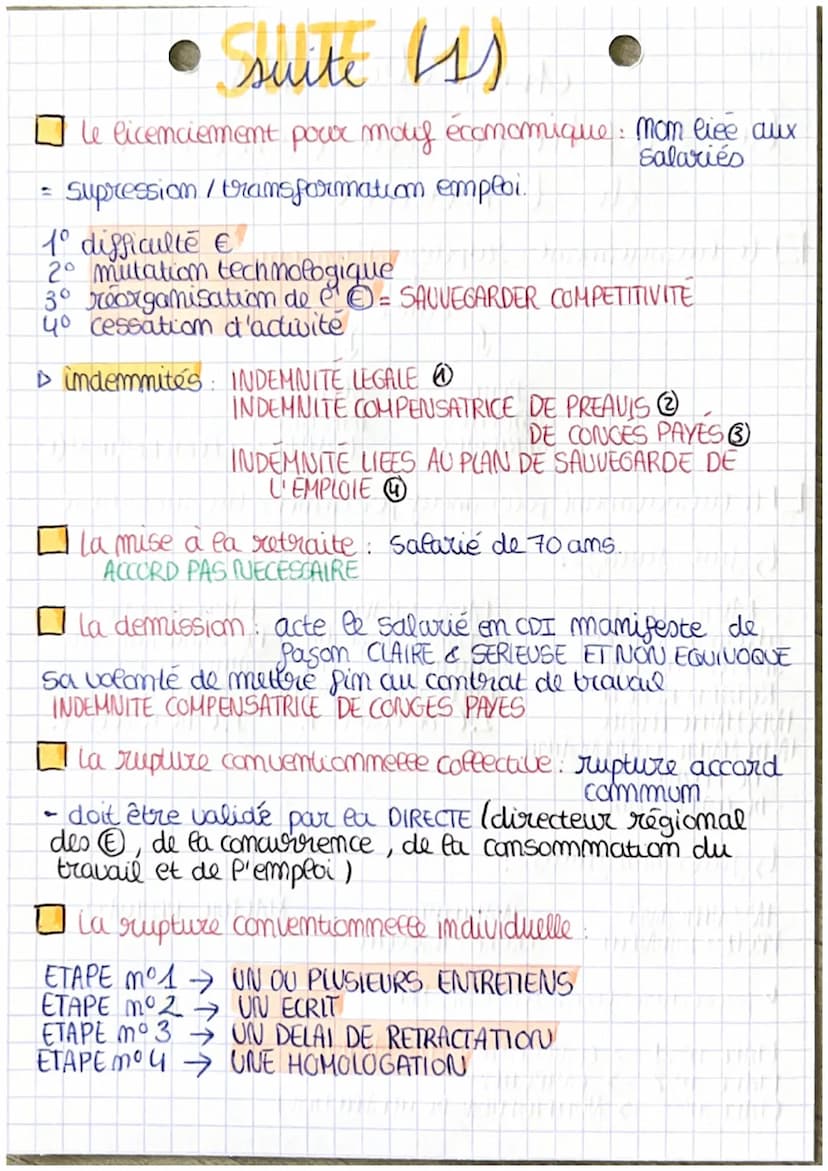 SUITE (1)
suite (1)
le licenciement pour motif économique : non liée aux
salariés
= supression / transformation emploi.
1° difficulté €
2° mutation technologique
3° réorganisation de l' Ⓔ = SAUVEGARDER COMPETITIVITÉ
4° cessation d'activité
▷ indemnités : INDEMNITÉ LEGALE ①
INDEMNITÉ COMPENSATRICE DE PREAVIS ②
DE CONGÉS PAYÉS ③
INDEMNITÉ LIEES AU PLAN DE SAUVEGARDE DE
L'EMPLOIE ④
La mise à la retraite : salarié de 70 ans.
ACCORD PAS NECESSAIRE
La demission : acte le salarié en CDI manifeste de
façon CLAIRE & SERIEUSE ET NON EQUIVOQUE
sa volonté de mettre fin au contrat de travail
INDEMNITE COMPENSATRICE DE CONGES PAYES
La rupture conventionnelle collective : rupture accord
commum
- doit être validé par la DIRECTE (directeur régional
des Ⓔ, de la concurrence, de la consommation du
travail et de l'emploi)
La rupture conventionnelle individuelle :
ETAPE n°1 → UN OU PLUSIEURS ENTRETIENS
ETAPE n°2 → UN ECRIT
ETAPE n°3 → UN DELAI DE RETRACTATION
ETAPE n°4 → UNE HOMOLOGATION